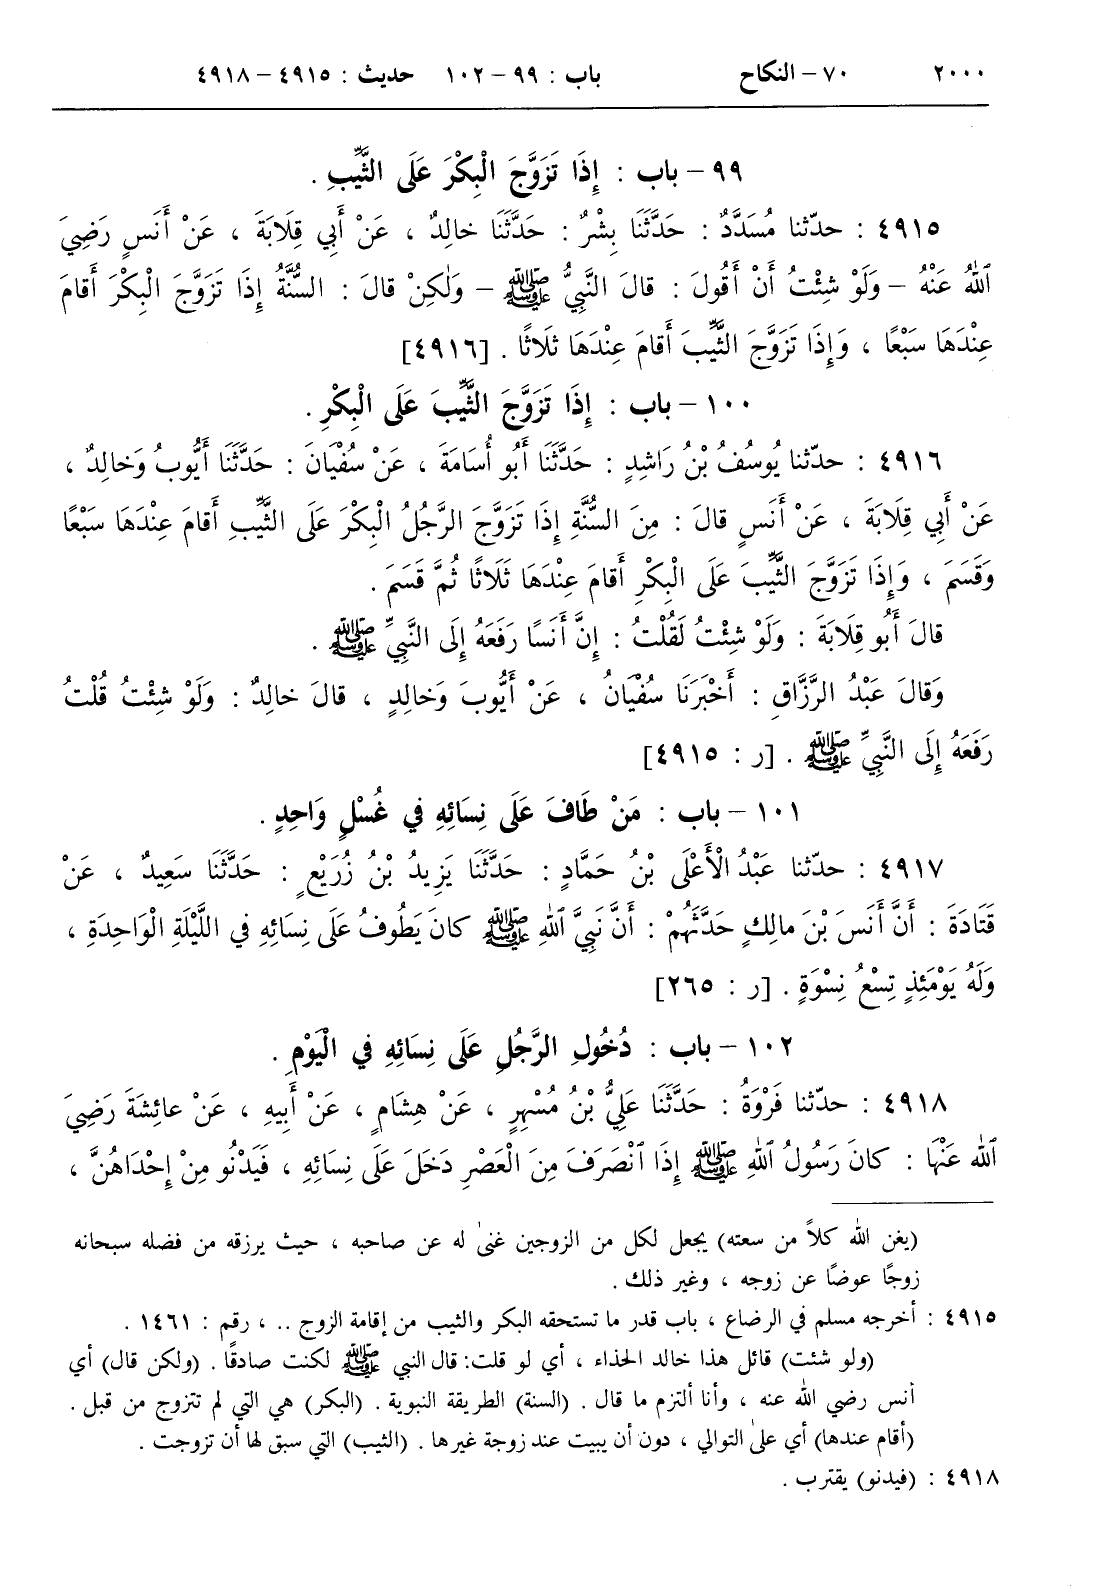 ٢٠٠٠ ٧٠ – النكاح باب : ٩٩ – ١٠٢ حديث : ٤٩١٥ – ٤٩١٨
٩٩ – باب : إِذَا تَزَوَّجَ الْبِكْرَ عَلَى الثَّيِّبِ .
٤٩١٥ : حدّثنا مُسَدَّدٌ : حَدَّثَنَا بِشْرٌ : حَدَّثَنَا خالِدٌ ، عَنْ أَبِي قِلَابَةَ ، عَنْ أَنَسٍ رَضِيَ
ٱللهُ عَنْهُ – وَلَوْ شِئْتُ أَنْ أَقُولَ : قالَ النَّبِيُّ ﷺ – وَلٰكِنْ قالَ : السُّنَّةُ إِذَا تَزَوَّجَ الْبِكْرَ أَقامَ
عِنْدَهَا سَبْعًا ، وَإِذَا تَزَوَّجَ الثَّيِّبَ أَقامَ عِنْدَهَا ثَلَاثًا . [٤٩١٦]
١٠٠ – باب : إِذَا تَزَوَّجَ الثَّيِّبَ عَلَى الْبِكْرِ .
٤٩١٦ : حدّثنا يُوسُفُ بْنُ رَاشِدٍ : حَدَّثَنَا أَبُو أُسَامَةَ ، عَنْ سُفْيَانَ : حَدَّثَنَا أَيُّوبُ وَخالِدٌ ،
عَنْ أَبِي قِلَابَةَ ، عَنْ أَنَسٍ قالَ : مِنَ السُّنَّةِ إِذَا تَزَوَّجَ الرَّجُلُ الْبِكْرَ عَلَى الثَّيِّبِ أَقامَ عِنْدَهَا سَبْعًا
وَقَسَمَ ، وَإِذَا تَزَوَّجَ الثَّيِّبَ عَلَى الْبِكْرِ أَقامَ عِنْدَهَا ثَلَاثًا ثُمَّ قَسَمَ .
قالَ أَبُو قِلَابَةَ : وَلَوْ شِئْتُ لَقُلْتُ : إِنَّ أَنَسًا رَفَعَهُ إِلَى النَّبِيِّ ﷺ .
وَقالَ عَبْدُ الرَّزَّاقِ : أَخْبَرَنَا سُفْيَانُ ، عَنْ أَيُّوبَ وَخالِدٍ ، قالَ خالِدٌ : وَلَوْ شِئْتُ قُلْتُ
رَفَعَهُ إِلَى النَّبِيِّ ﷺ . [ر : ٤٩١٥]
١٠١ – باب : مَنْ طَافَ عَلَى نِسَائِهِ فِي غُسْلٍ وَاحِدٍ .
٤٩١٧ : حدّثنا عَبْدُ الْأَعْلَى بْنُ حَمَّادٍ : حَدَّثَنَا يَزِيدُ بْنُ زُرَيْعٍ : حَدَّثَنَا سَعِيدٌ ، عَنْ
قَتَادَةَ : أَنَّ أَنَسَ بْنَ مالِكٍ حَدَّثَهُمْ : أَنَّ نَبِيَّ ٱللهِ ﷺ كانَ يَطُوفُ عَلَى نِسَائِهِ فِي اللَّيْلَةِ الْوَاحِدَةِ ،
وَلَهُ يَوْمَئِذٍ تِسْعُ نِسْوَةٍ . [ر : ٢٦٥]
١٠٢ – باب : دُخُولِ الرَّجُلِ عَلَى نِسَائِهِ فِي الْيَوْمِ .
٤٩١٨ : حدّثنا فَرْوَةُ : حَدَّثَنَا عَلِيُّ بْنُ مُسْهِرٍ ، عَنْ هِشَامٍ ، عَنْ أَبِيهِ ، عَنْ عائِشَةَ رَضِيَ
ٱلله عَنْهَا : كانَ رَسُولُ ٱللهِ ﷺ إِذَا ٱنْصَرَفَ مِنَ الْعَصْرِ دَخَلَ عَلَى نِسَائِهِ ، فَيَدْنُو مِنْ إِحْدَاهُنَّ ،
(يغن الله كلاً من سعته) يجعل لكل من الزوجين غنىٰ له عن صاحبه ، حيث يرزقه من فضله سبحانه
زوجًا عوضًا عن زوجه ، وغير ذلك .
٤٩١٥ : أخرجه مسلم في الرضاع ، باب قدر ما تستحقه البكر والثيب من إقامة الزوج .. ، رقم : ١٤٦١ .
(ولو شئت) قائل هذا خالد الحذاء ، أي لو قلت: قال النبي ﷺ لكنت صادقًا . (ولكن قال) أي
أنس رضي الله عنه ، وأنا ألتزم ما قال . (السنة) الطريقة النبوية . (البكر) هي التي لم تتزوج من قبل .
(أقام عندها) أي علىٰ التوالي ، دون أن يبيت عند زوجة غيرها . (الثيب) التي سبق لها أن تزوجت .
٤٩١٨ : (فيدنو) يقترب .